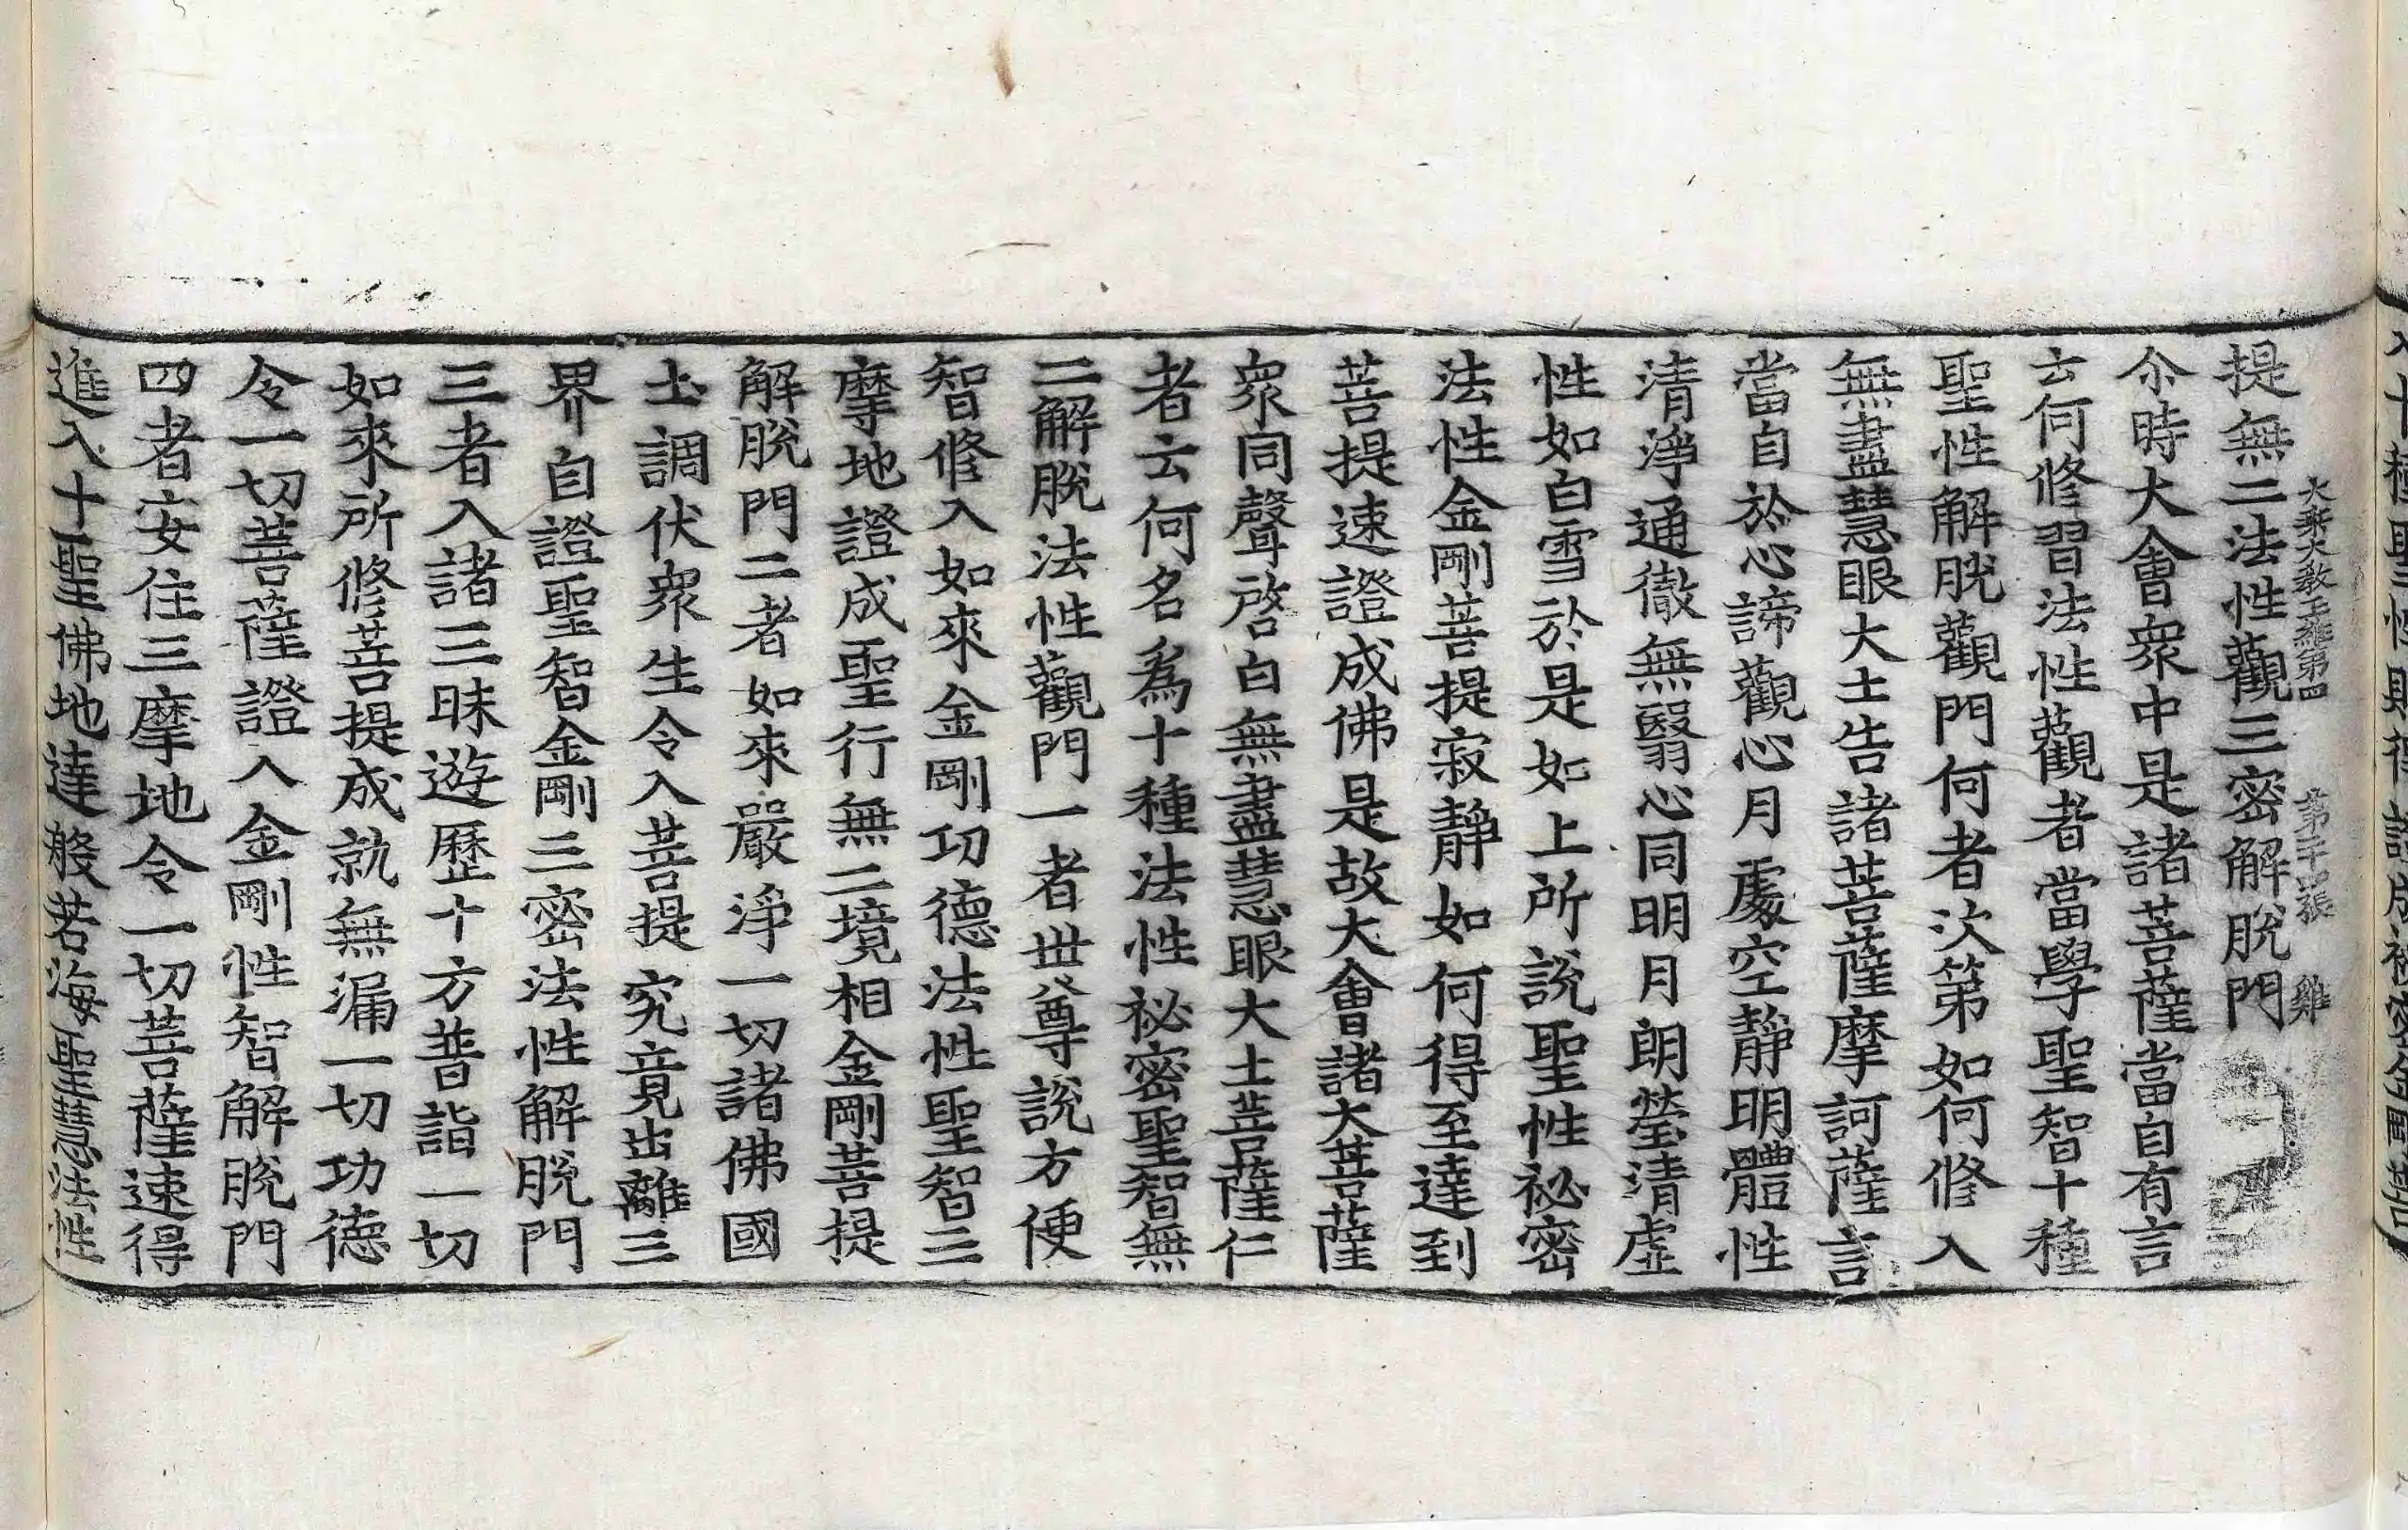 大乘大教王經第四 第十張 雞
提無二法性觀三密解脫門
尒時大會衆中是諸菩薩當自有言
云何修習法性觀者當學聖智十種
聖性解脫觀門何者次第如何修入
無盡慧眼大士告諸菩薩摩訶薩言
當自於心諦觀心月處空靜明體性
清淨通徹無翳心同明月朗瑩清虛
性如白雪於是如上所說聖性祕密
法性金剛菩提寂靜如何得至達到
菩提速證成佛是故大會諸大菩薩
衆同聲啓白無盡慧眼大士菩薩仁
者云何名爲十種法性祕密聖智無
二解脫法性觀門一者世尊說方便
智修入如來金剛功德法性聖智三
摩地證成聖行無二境相金剛菩提
解脫門二者如來嚴淨一切諸佛國
土調伏衆生令入菩提究竟出離三
界自證聖智金剛三密法性解脫門
三者入諸三昧遊歷十方普詣一切
如來所修菩提成就無漏一切功德
令一切菩薩證入金剛性智解脫門
四者安住三摩地令一切菩薩速得
進入十聖佛地達般若海聖慧法性